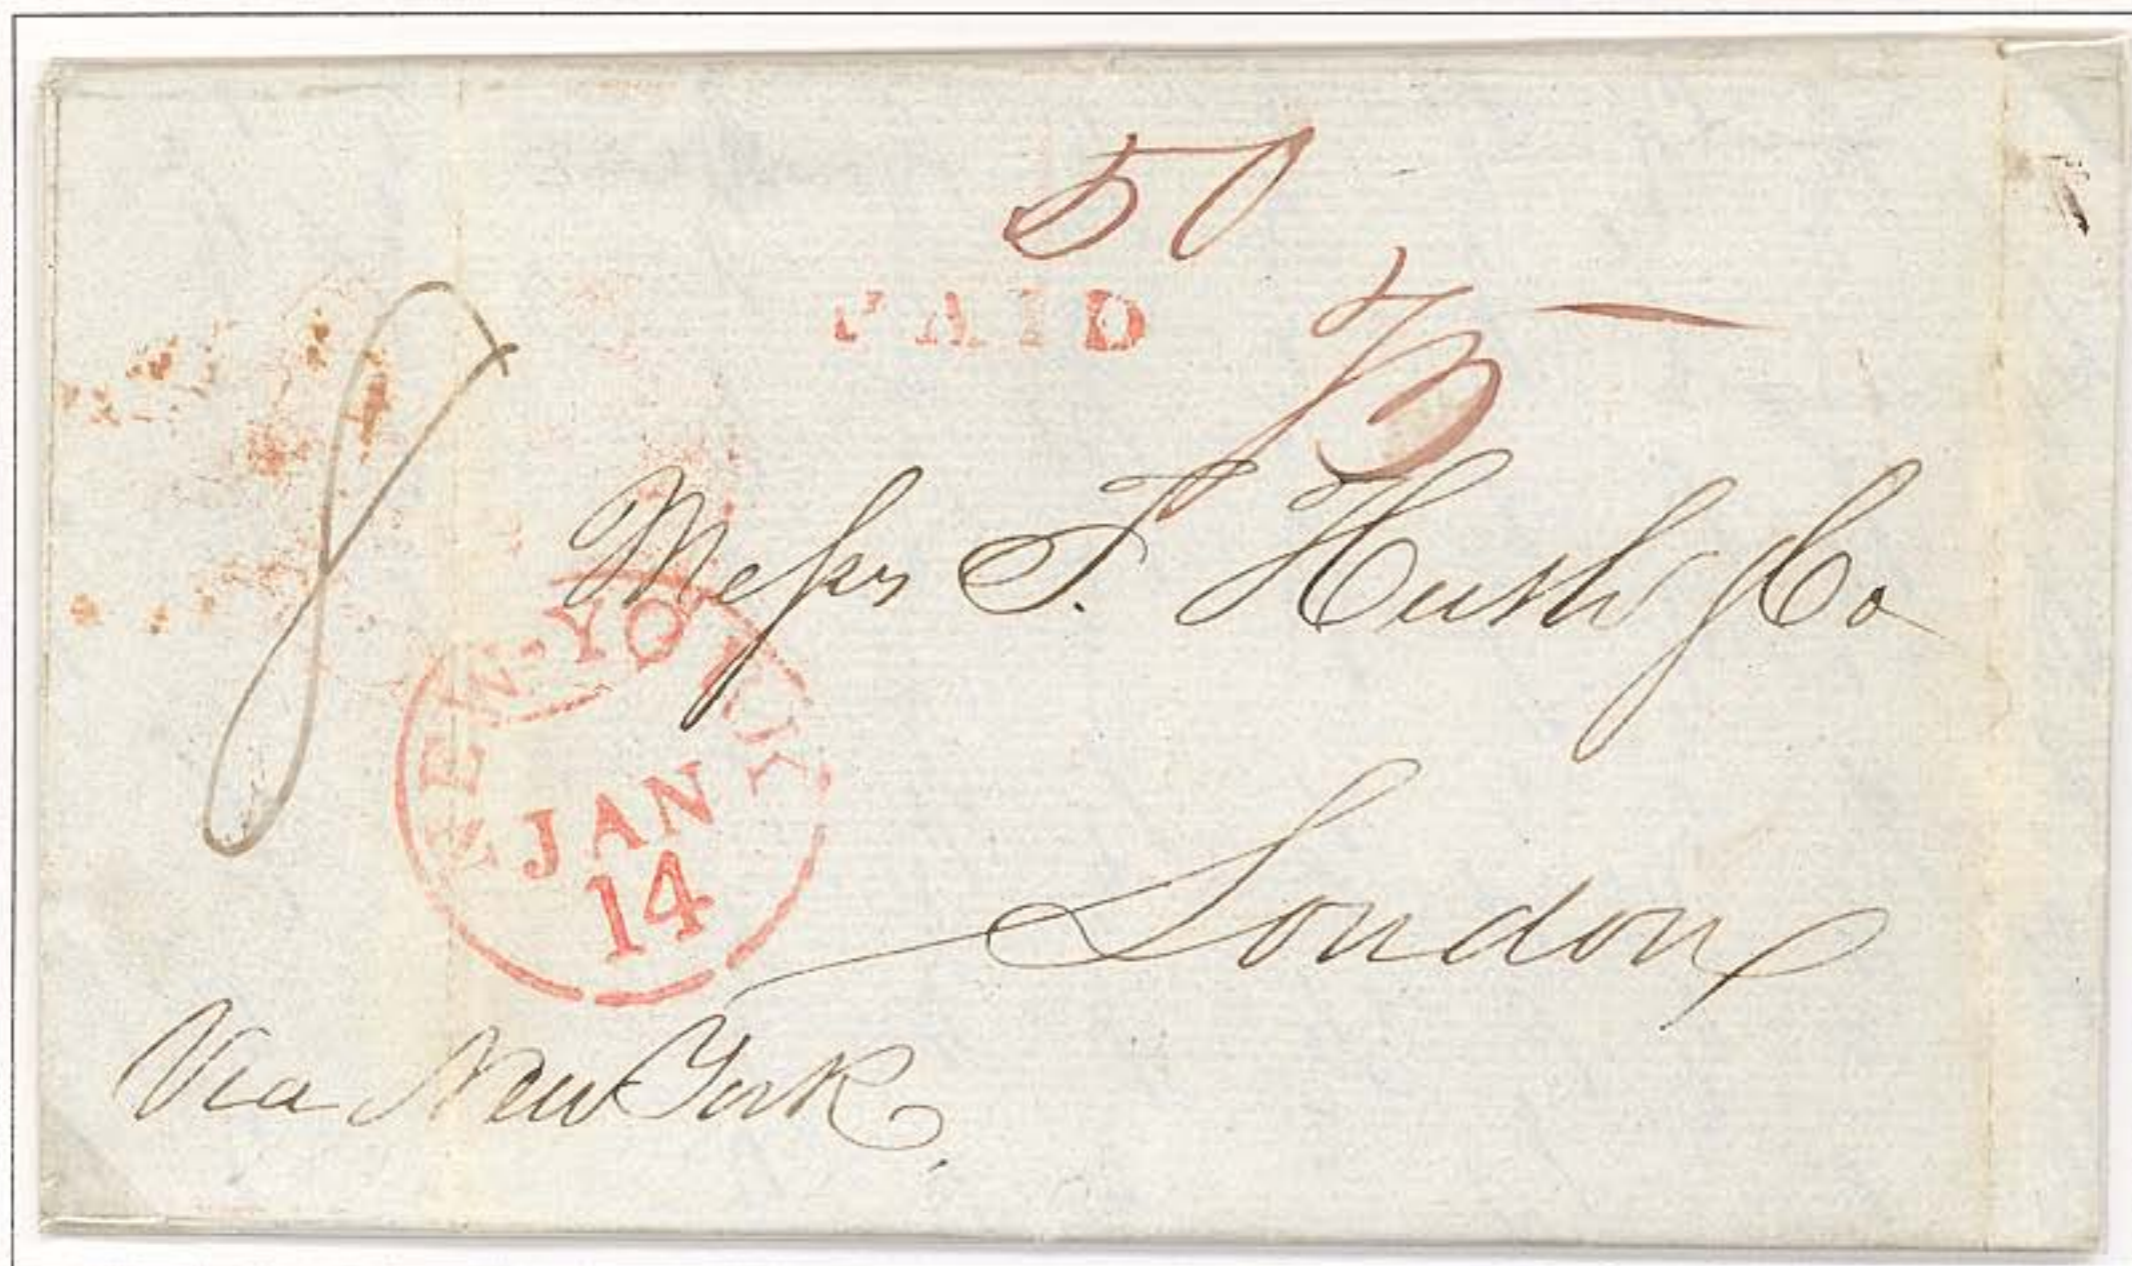 50
PAID
75
8
Messrs F. Huth & Co
NEW-YORK
JAN
14
London
Via New York,